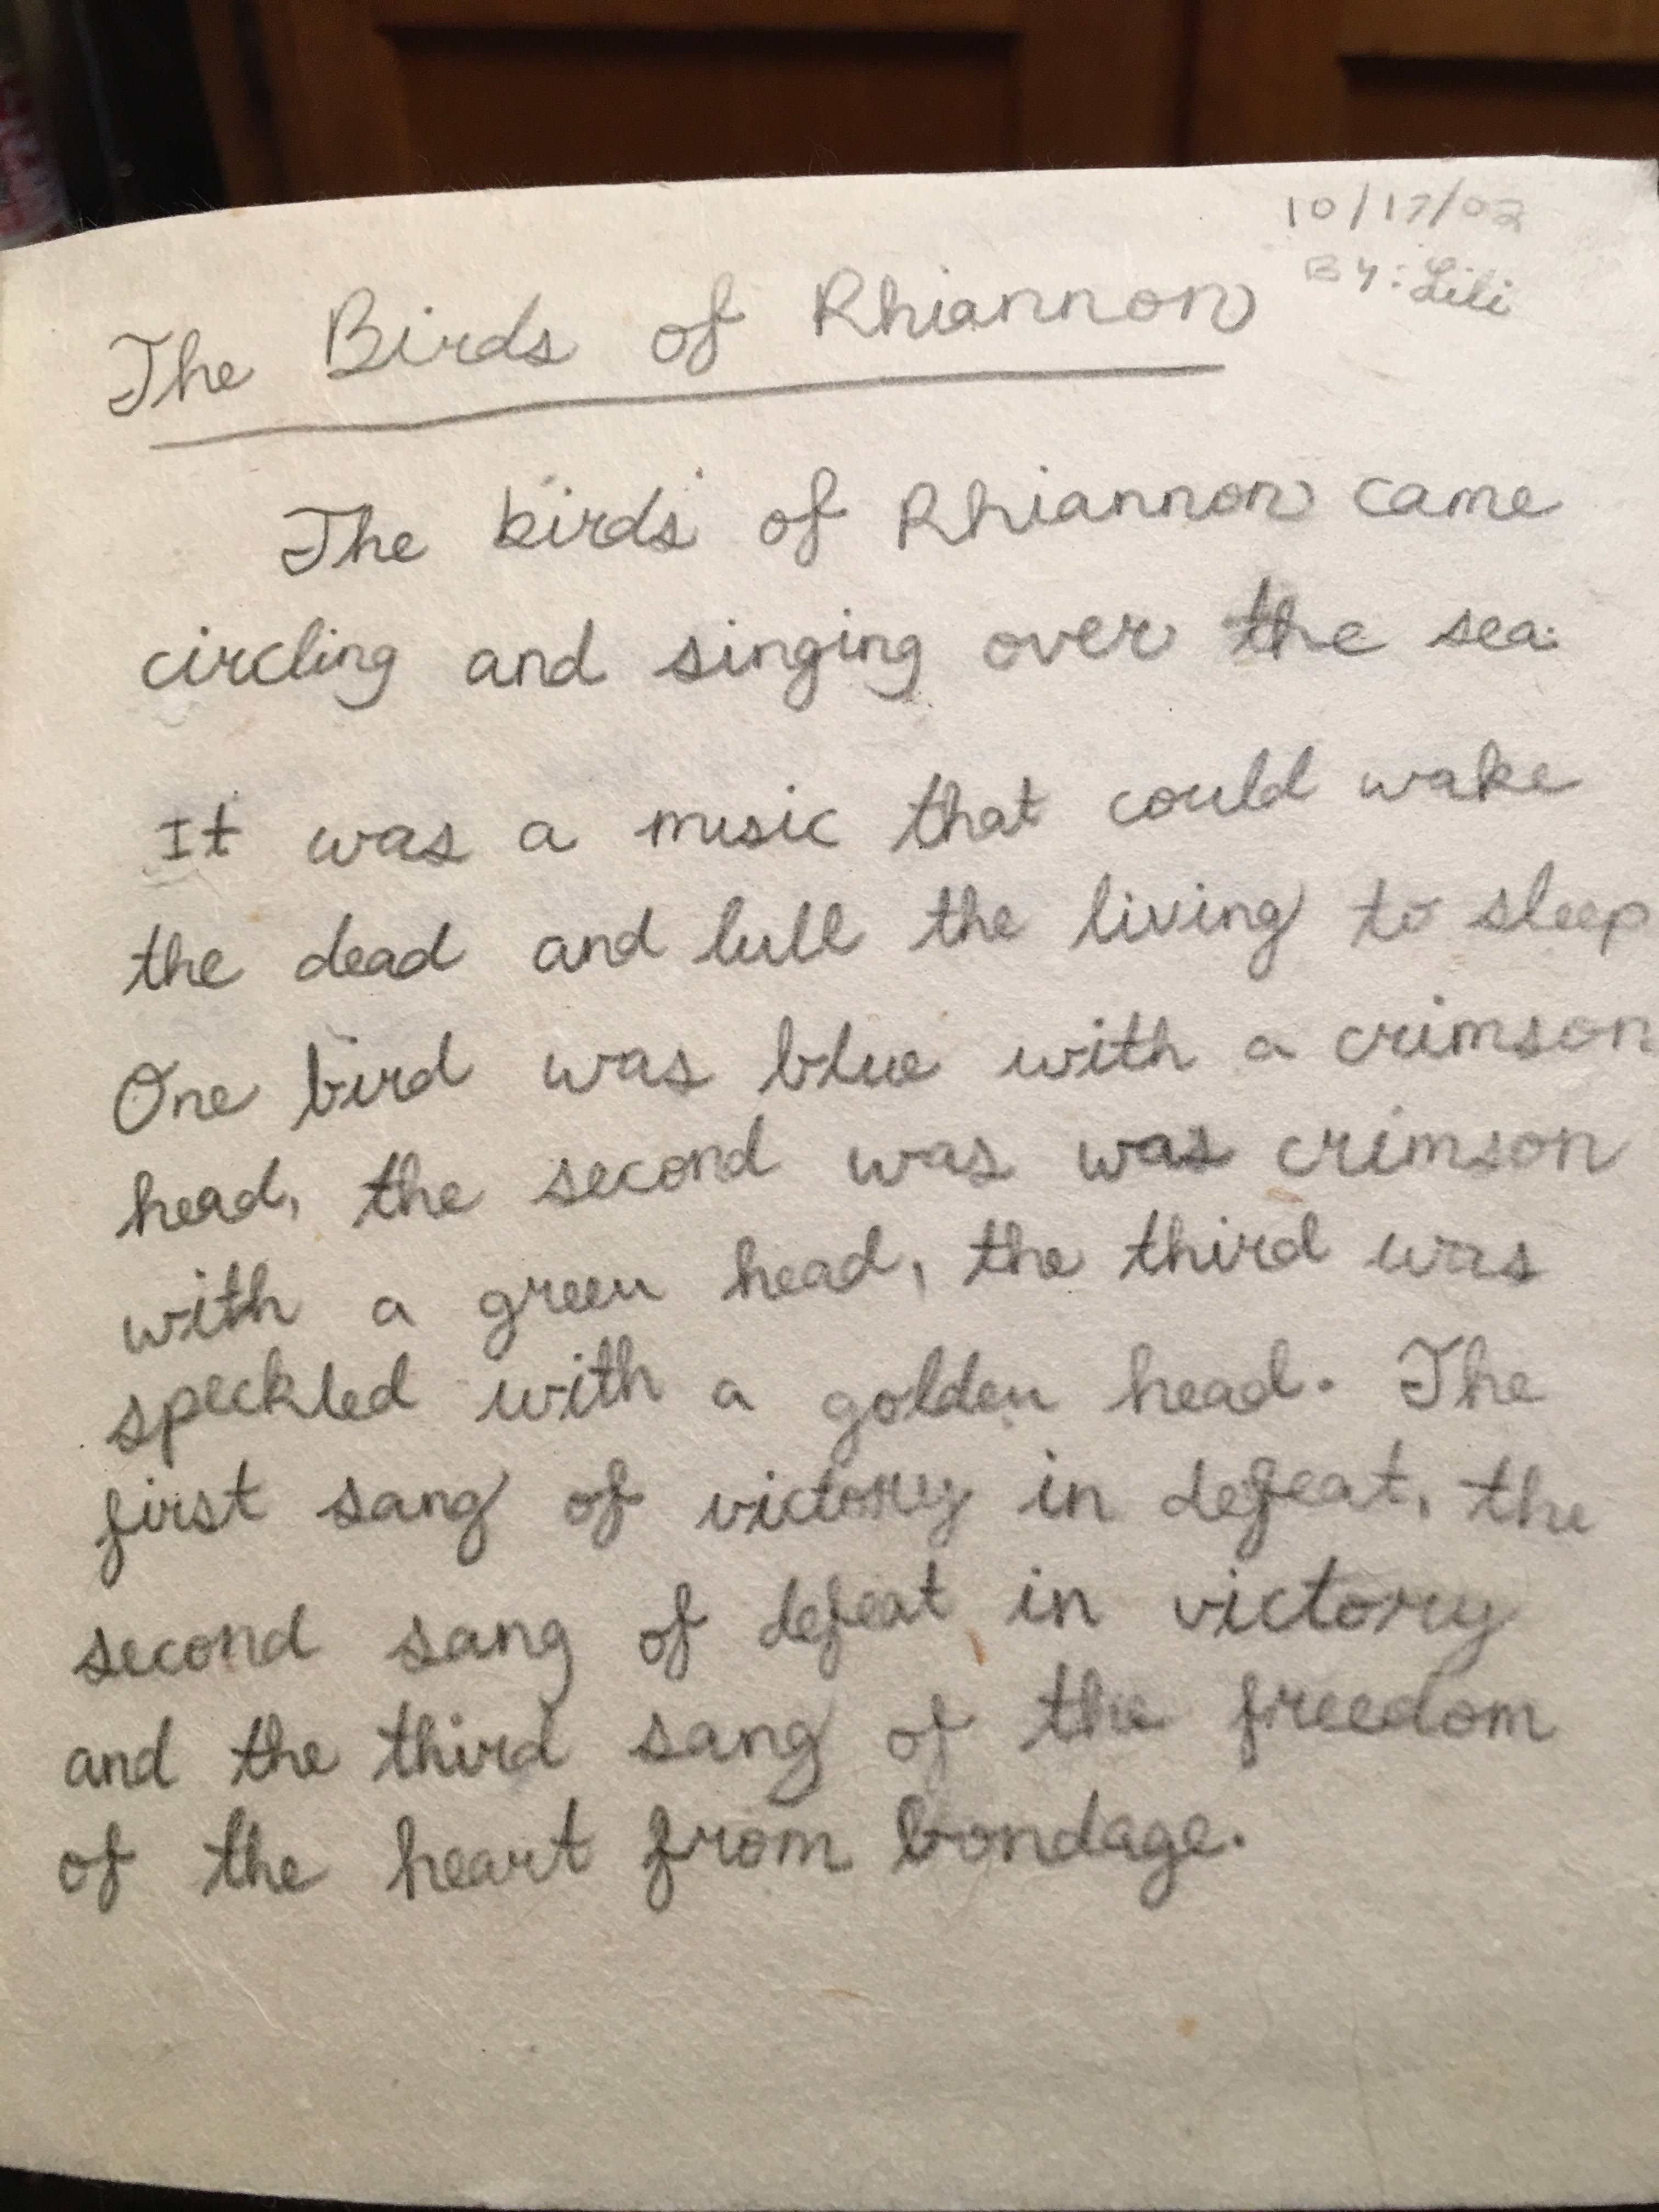 10/17/02
By: Lili
The Birds of Rhiannon
The birds of Rhiannon came
circling and singing over the sea.
It was a music that could wake
the dead and lull the living to sleep
One bird was blue with a crimson
head, the second was was crimson
with a green head, the third was
speckled with a golden head. The
first sang of victory in defeat, the
second sang of defeat in victory
and the third sang of the freedom
of the heart from bondage.